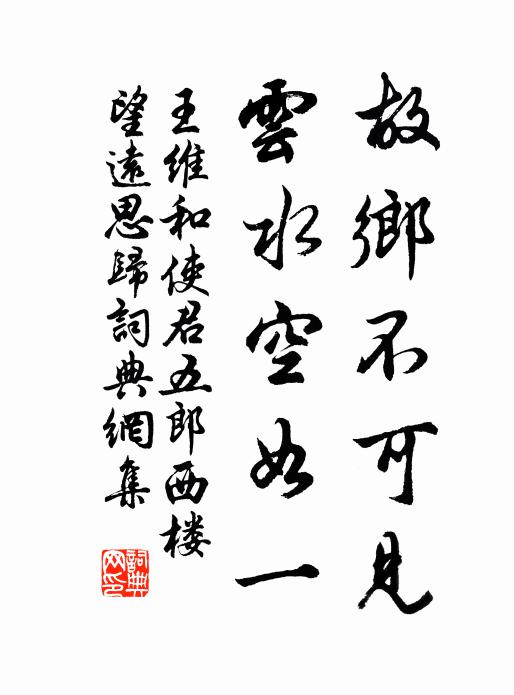 故鄉不可見
雲水空如一
王維和使君五郎西楼
望遠思歸詞典網集
詞典網印